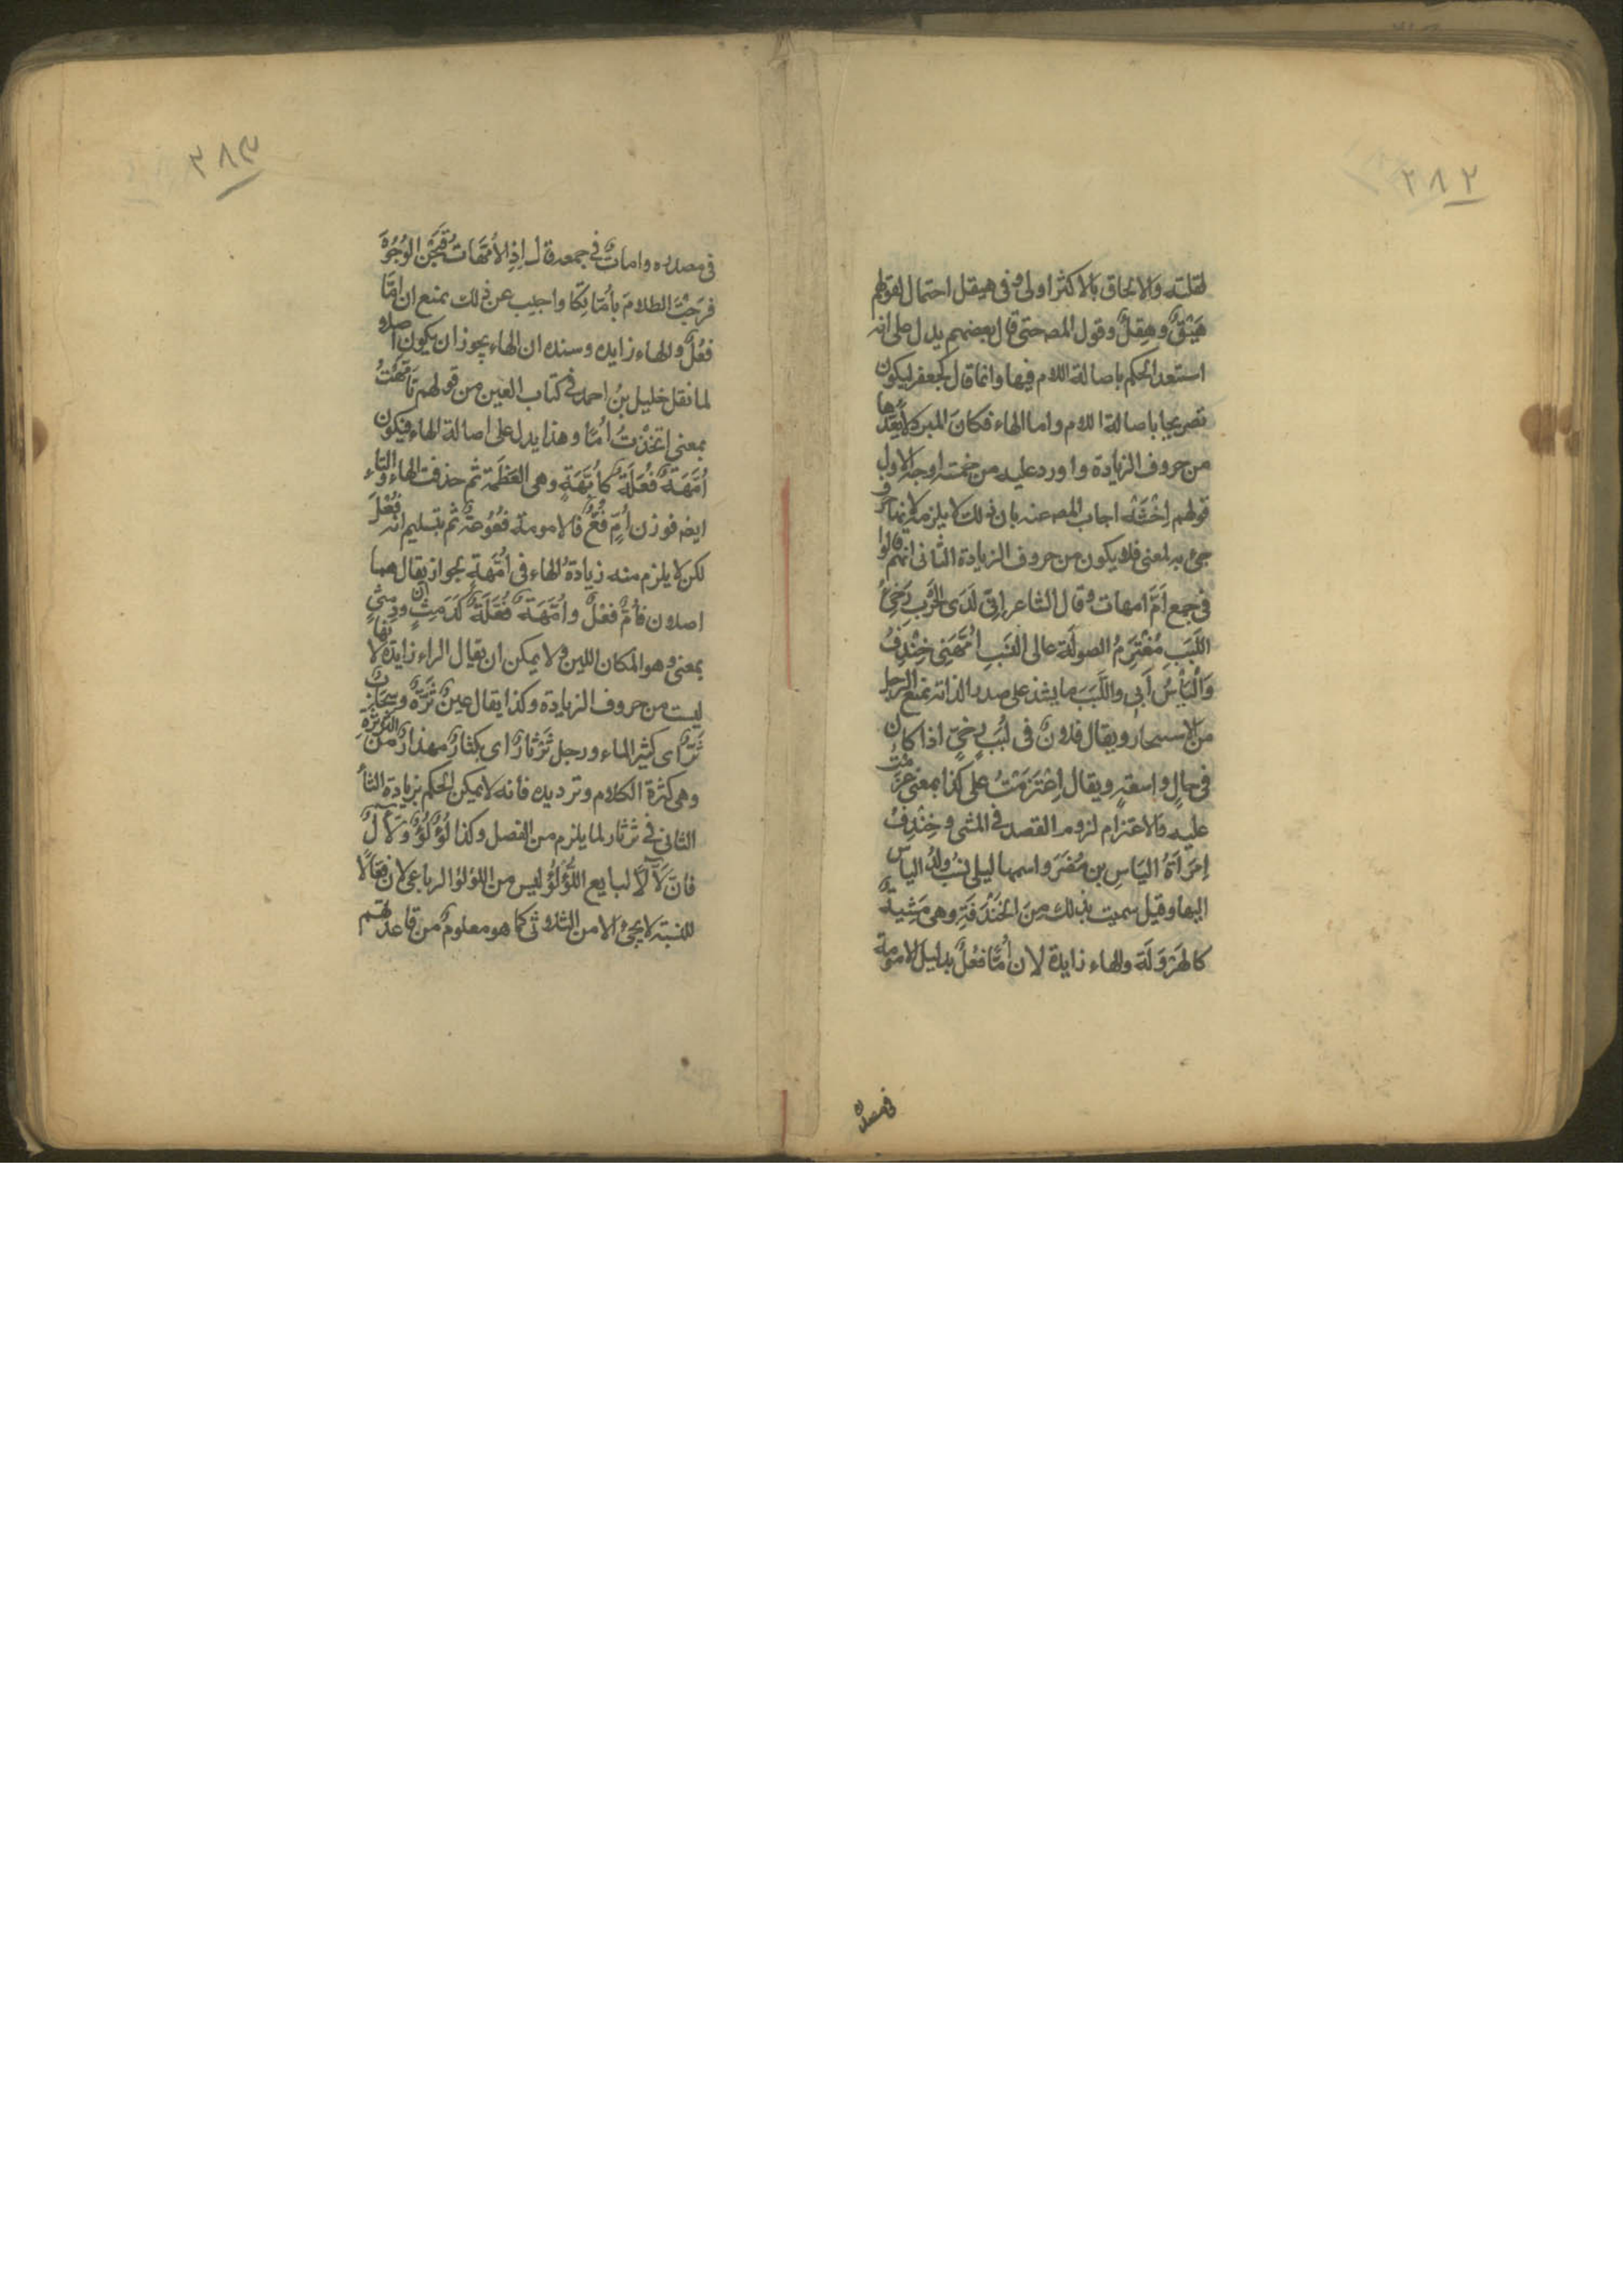 ٢٨٢
لقلته والالحاق بالاكثر اولى وفى هيقل احتمال لقولهم
هَيْقٌ وهِقِلٌّ وقول المصـ حتى قال بعضهم يدل على انه
استبعد الحكم باصالة اللام فيها وانما قال كجعفر ليكون
تصريحا باصالة اللام واما الهاء فكان المبرد لا يَعُدُّها
من حروف الزيادة واورد عليه من خمسة اوجه الاول
قولهم اِخْشَهْ اجاب المصـ عنه بان ذلك لا يلزمه لانها حرف
جئ به لمعنى فلا يكون من حروف الزيادة الثانى انهم قالوا
فى جمع اُمّ امهات وقال الشاعر اِنِّى لَدَى الحَرْبِ رَخِىُّ
اللَّبَبِ مُعْتَزِمُ الصولة عالى النَّسَبِ اُمَّهَتِى خِنْدِفُ
وَالْيَأْسُ اَبِى واللَّبَبَ ما يشد على صدر الدابة يمنع الرحل
من الاستيخار ويقال فلانٌ فى لَبَبٍ رخىٍّ اذا كان
فى حالٍ واسعةٍ ويقال اِعْتَزَمْتُ على كذا بمعنى عزمت
عليه والاعتزام لزوم القصد فى المشى وخِنْدِفُ
اِمْرَأَةُ اليَاسِ بن مُضَرَ واسمها ليلى نُسِبَ ولدُ الياس
اليها وقيل سميت بذلك مِنَ الخَنْدَفَةِ وهى مَشِيةٌ
كالهَرْوَلَة والهاء زايدة لان اُمًّا فُعْلٌ بدليل الامومة
فى مصدره
٢٨٣
فى مصدره واماتٌ فى جمعه قال اِذِ الاُمَّهَاتُ قَبَحْنَ الوُجُوْهَ
فَرَجْتَ الظلامَ بأُمَّاتِكا واجيب عن ذلك بمنع ان اُمًّا
فُعْلٌ والهاء زايده وسنده ان الهاء يجوز ان يكون اصلا
لما نقل خليل بنُ احمد فى كتاب العين من قولهم تَأَمَّهْتُ
بمعنى اتخَذْتُ اُمًّا وهذا يدل على اصالة الهاء فيكون
اُمَّهَةٌ فُعَّلَةٌ كأُبَّهَةٍ وهى العَظَمَة ثم حذفت الهاء والتاء
ايضـ فوزن اُمٍّ فُعٌّ فالامومة فُعُوعَةٌ ثم بتسليم انه فُعْلٌ
لكن لا يلزم منه زيادةُ الهاء فى اُمَّهَةٍ لجواز ان يقال هما
اصلان فاُمٌّ فُعْلٌ واُمَّهَةٌ فُعَّلَةٌ كَدَمِثٍ ودِمَثْرٍ
بمعنى وهو المكان اللين ولا يمكن ان يقال الراء زايدة لانها
ليست من حروف الزيادة وكذا يقال عينٌ ثَرَّةٌ وسحابٌ
ثَرٌّ اى كثير الماء ورجل ثَرْثَارٌ اى مكثارٌ مهذارٌ من الثرثرة
وهى كثرة الكلام وترديده فانه لا يمكن الحكم بزيادة الثاء
الثانى فى ثرثار لما يلزم من الفصل وكذا لُؤْلُؤٌ ولَأّالٌ
فانَّ لَأّالًا لبايع اللُّؤْلُؤِ ليس من اللؤلؤ الرباعى لان فَعَّالًا
للنسبة لا يجئ الا من الثلاثى كما هو معلومٌ من قاعدتهم